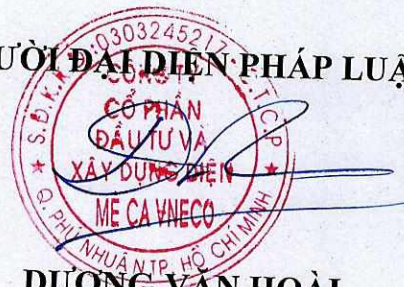 ƯỜI ĐẠI DIỆN PHÁP LUẬ
S.Đ.K.K.D:0303245217-C.T.C.P
CÔNG TY
CỔ PHẦN
ĐẦU TƯ VÀ
XÂY DỰNG ĐIỆN
MÊ CA VNECO
Q. PHÚ NHUẬN TP. HỒ CHÍ MINH
DƯƠNG VĂN HOÀI